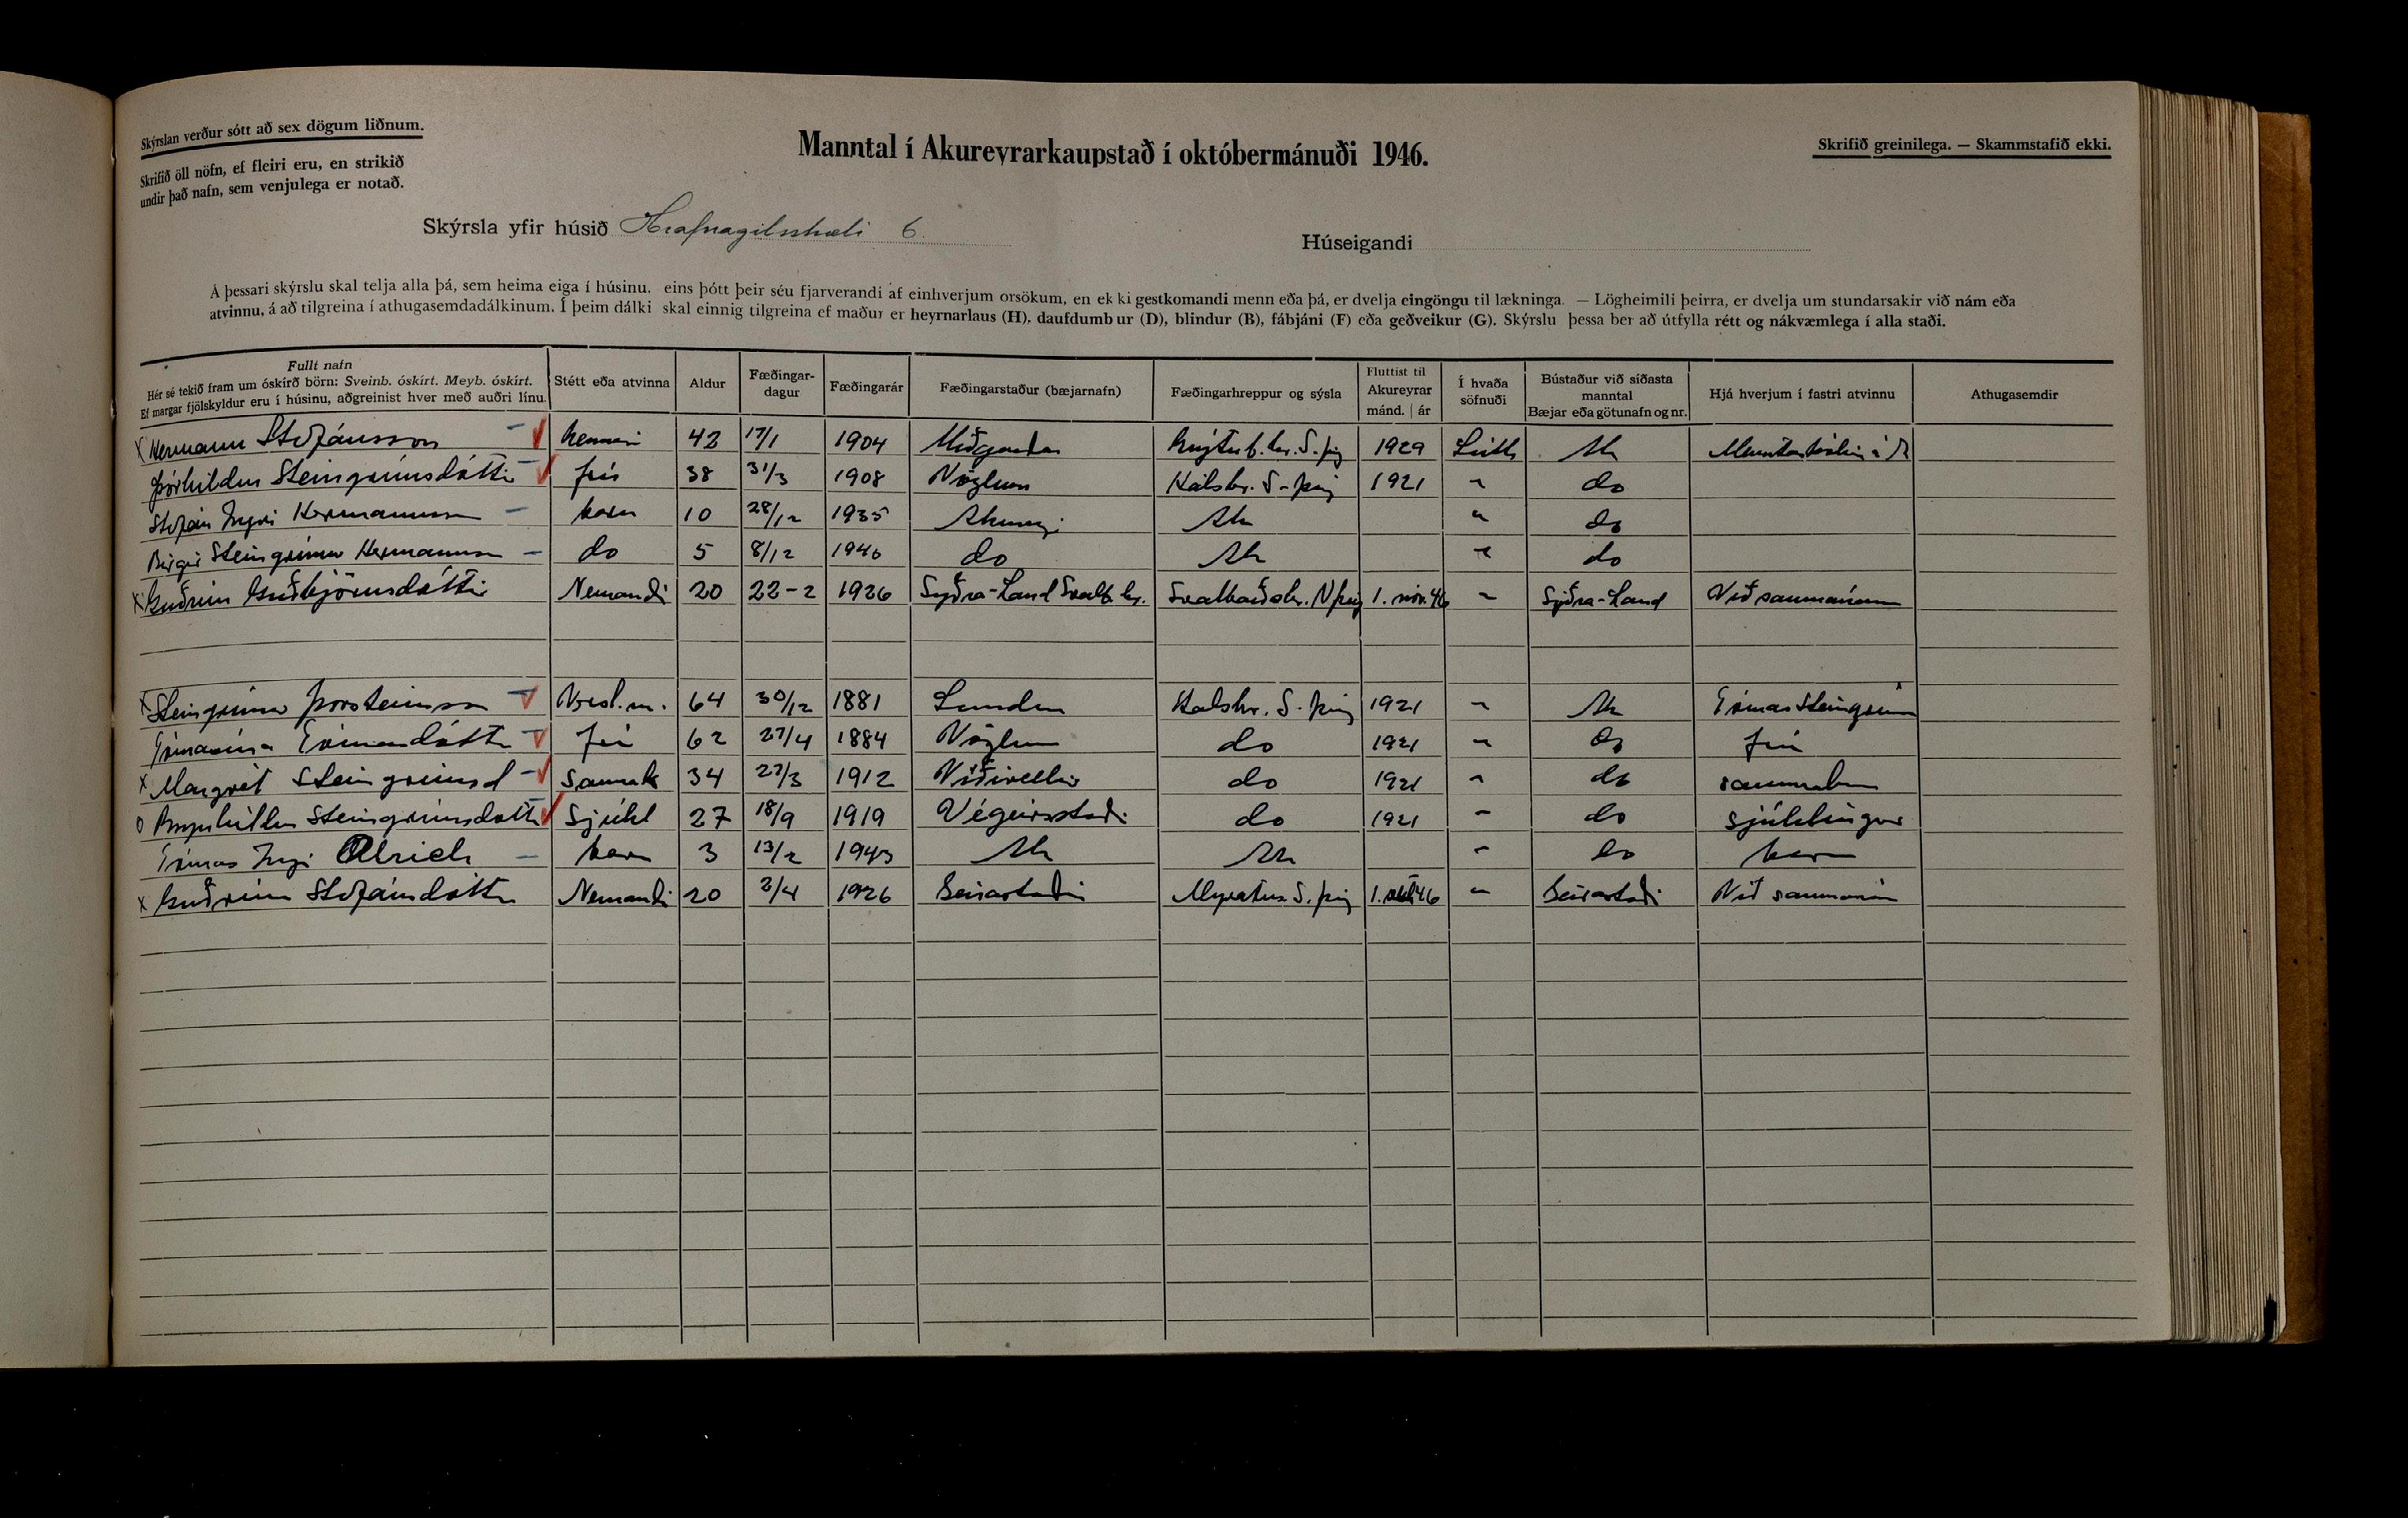 Skýrslan verður sótt að sex dögum liðnum.
Skrifið öll nöfn, ef fleiri eru, en strikið
undir það nafn, sem venjulega er notað.
Manntal í Akureyrarkaupstað í októbermánuði 1946.
Skrifið greinilega. — Skammstafið ekki.
Skýrsla yfir húsið Hrafnagilsstræti 6.
Húseigandi
Á þessari skýrslu skal telja alla þá, sem heima eiga í húsinu. eins þótt þeir séu fjarverandi af einhverjum orsökum, en ekki gestkomandi menn eða þá, er dvelja eingöngu til lækninga. — Lögheimili þeirra, er dvelja um stundarsakir við nám eða
atvinnu, á að tilgreina í athugasemdadálkinum. Í þeim dálki skal einnig tilgreina ef maður er heyrnarlaus (H), daufdumbur (D), blindur (B), fábjáni (F) eða geðveikur (G). Skýrslu þessa ber að útfylla rétt og nákvæmlega í alla staði.
Fullt nafn
Hér sé tekið fram um óskírð börn: Sveinb. óskírt. Meyb. óskírt.
Ef margar fjölskyldur eru í húsinu, aðgreinist hver með auðri línu.
Stétt eða atvinna
Aldur
Fæðingar-
dagur
Fæðingarár
Fæðingarstaður (bæjarnafn)
Fæðingarhreppur og sýsla
Fluttist til
Akureyrar
mánd. | ár
Í hvaða
söfnuði
Bústaður við síðasta
manntal
Bæjar eða götunafn og nr.
Hjá hverjum í fastri atvinnu
Athugasemdir
x Hermann Stefánsson kennari 42 17/1 1904 Miðgarðar Grýtub.hr. S.þing 1929 Lúth Ak Menntaskólin á A
Þórhildur Steingrímsdóttir frú 38 31/3 1908 Vöglum Hálshr. S-þing 1921 " do
Stefán Ingvi Hermannsson barn 10 28/12 1935 Akureyri Ak " do
Birgir Steingrímur Hermannsson do 5 8/12 1940 do Ak " do
x Guðrún Guðbjörnsdóttir Nemandi 20 22-2 1926 Syðra-Land Svalb.hr. Svalbarðshr. N þing 1. nóv. 46 " Syðra-Land Við saumanám
x Steingrímur Þorsteinsson Versl.m. 64 30/12 1881 Lundur Halshr. S-þing 1921 " Ak Tómas Steingrím
Tómasína Tómasdóttir frú 62 27/4 1884 Vöglum do 1921 " do frú
x Margrét Steingrímsd Saumak 34 27/3 1912 Víðivellir do 1921 " do saumakona
o Brynhildur Steingrímsdóttir Sjúkl 27 18/9 1919 Végeirsstaðir do 1921 " do sjúklingur
Tómas Ingi Olrich barn 3 13/2 1943 Ak Ak " do barn
x Guðrún Stefánsdóttir Nemandi 20 2/4 1926 1. 46 " Við saumanám